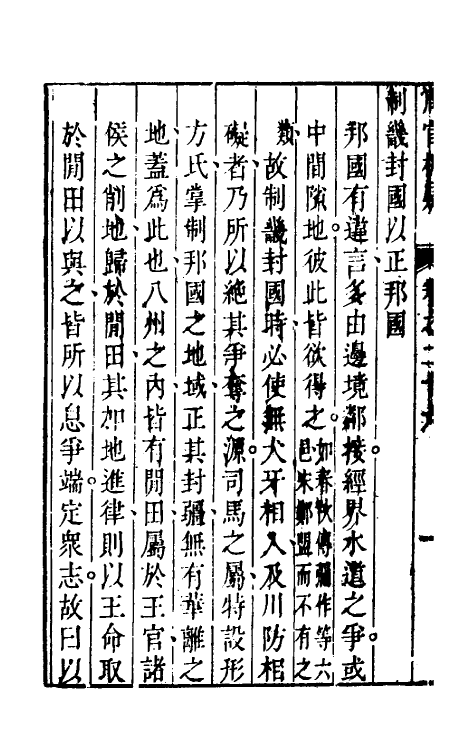 周官析疑　卷之二十　一
制畿封國以正邦國
邦國有違言多由邊境鄰接經界水道之爭。或
中間隙地。彼此皆欲得之。如春秋傳彌作等六邑宋鄭盟而不有之
類故制畿封國時、必使無犬牙相入、及川防相
礙者、乃所以絶其爭奪之源。司馬之屬、特設形
方氏、掌制邦國之地域、正其封疆、無有華離之
地、蓋爲此也、八州之內、皆有閒田、屬於王官、諸
侯之削地、歸於閒田、其加地進律、則以王命取
於閒田以與之、皆所以息爭端。定衆志。故曰以